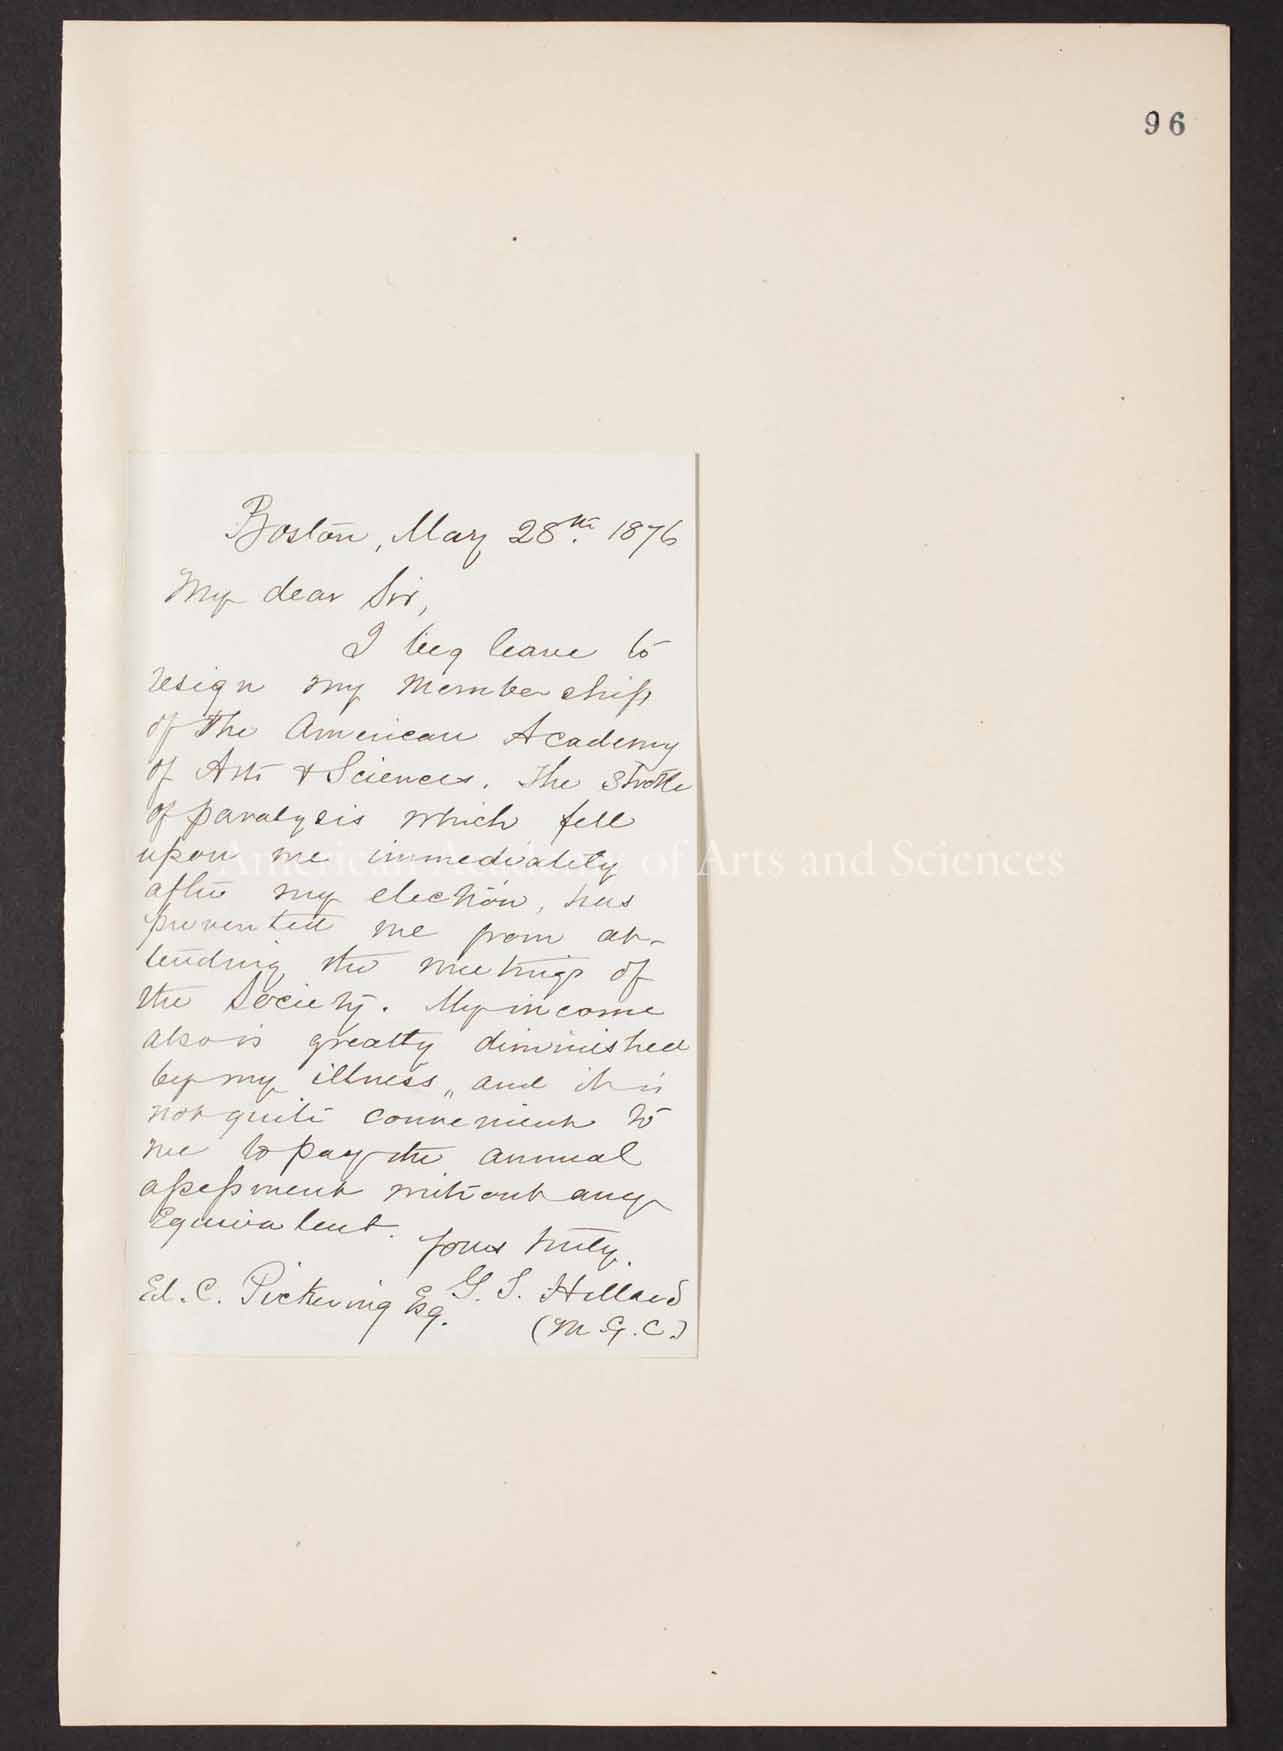 96
Boston, May 28th. 1876
My dear Sir,
I beg leave to
resign my membership
of the American Academy
of Arts & Sciences. The stroke
of paralysis which fell
upon me immediately
after my election, has
prevented me from at-
tending the meetings of
the Society. My income
also is greatly diminished
by my illness, and it is
not quite convenient to
me to pay the annual
assessment without any
Equivalent.
Yours truly
G. S. Hillard
(M. G. C.)
Ed. C. Pickering Esq.
American Academy of Arts and Sciences